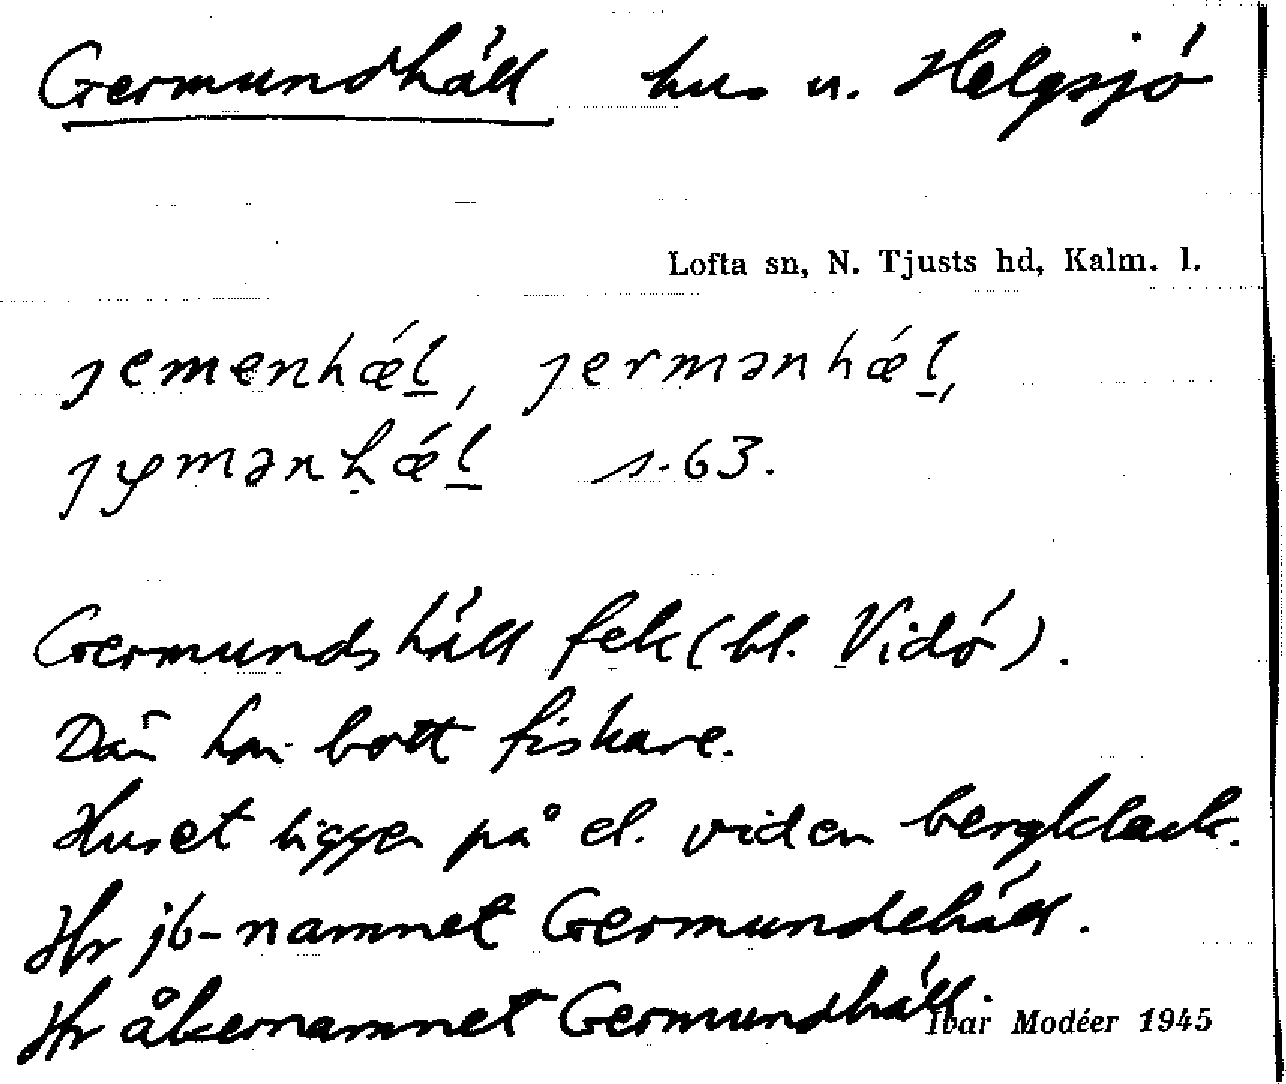 Germundhäll hus u. Helgsjö
Lofta sn, N. Tjusts hd, Kalm. l.
ɟemenhǽl, ɟermənhǽl,
mənhǽl s. 63.
Germundshäll fek (bl. Vidö).
Där har bott fiskare.
Huset ligger på el. vid en bergklack.
Jfr jb-namnet Germundehäll.
Jfr åkernamnet Germundhäll.
Ivar Modéer 1945